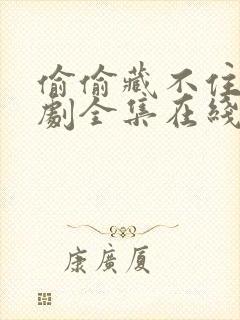 偷偷藏不住
劇全集在綫
康廣厦